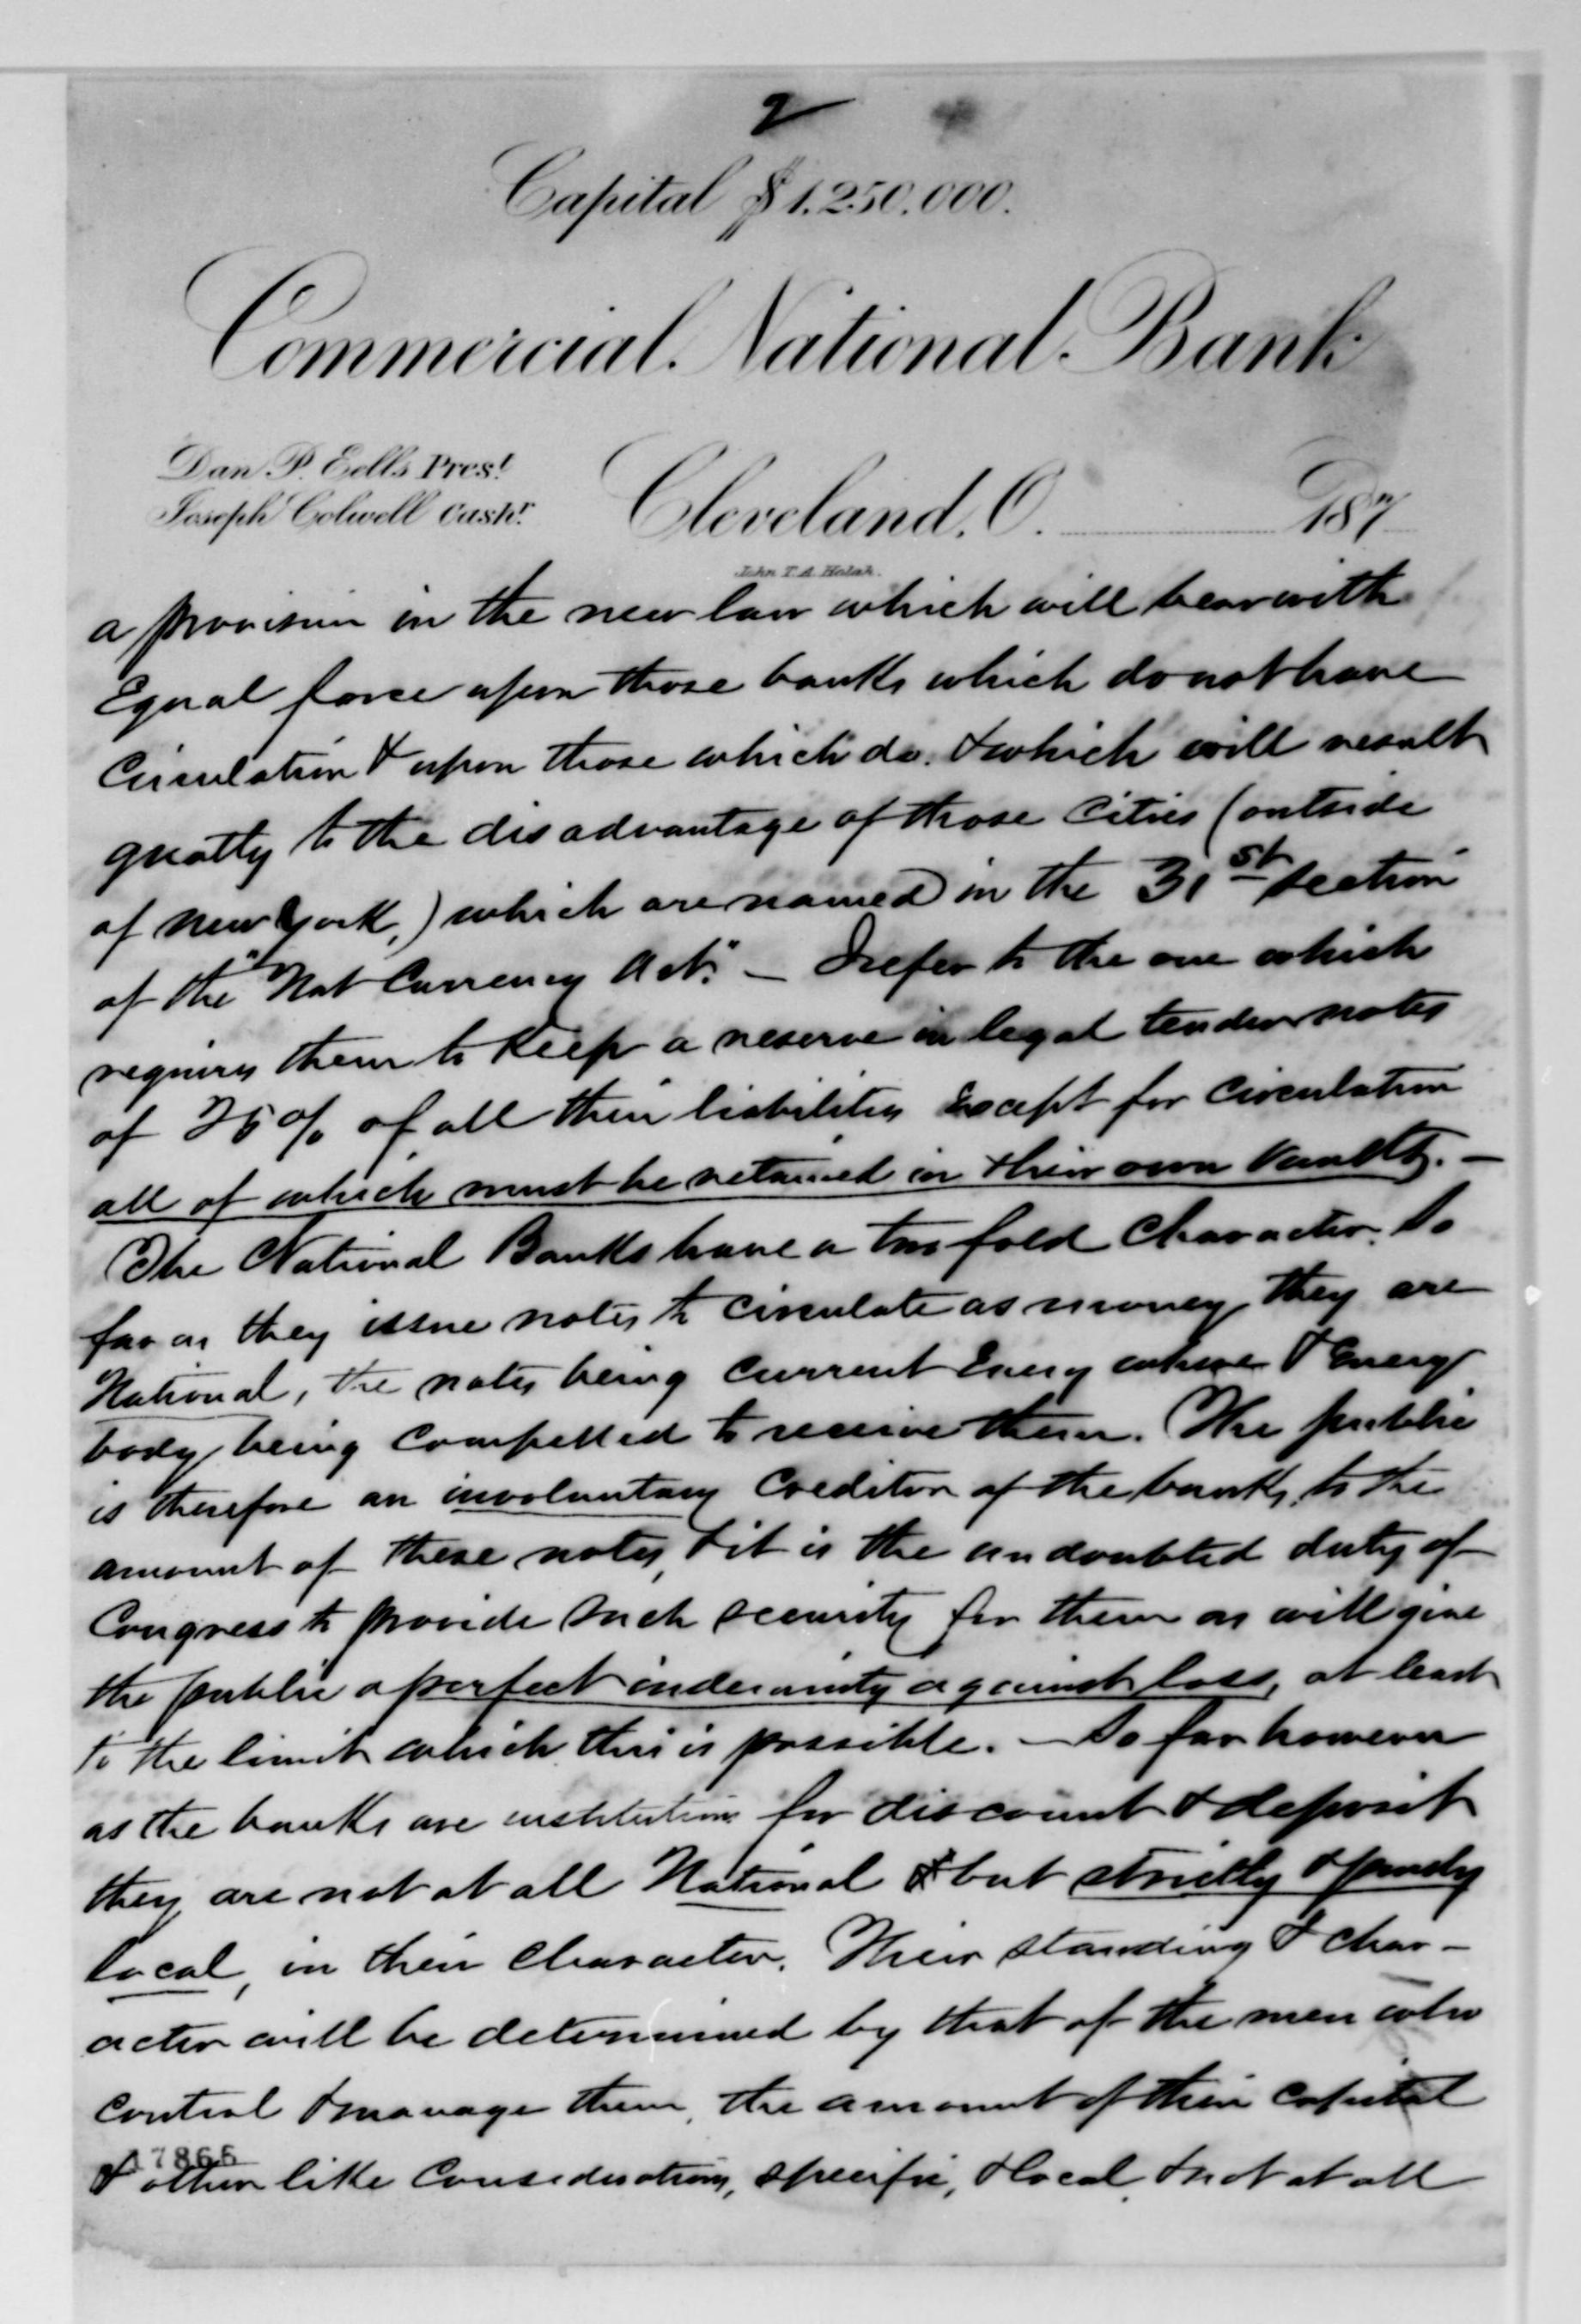 2
Capital $1.250.000.
Commercial. National. Bank
Dan. P. Eells Pres.t
Joseph Colwell Cash.r
Cleveland, O. 187
a provision in the new law which will bear with
Equal force upon those banks which do not have
Circulation & upon those which do. & which will result
greatly to the disadvantage of those Cities (outside
of New York,) which are named in the 31st section
of the "Nat Currency Act." — I refer to the one which
requires them to Keep a reserve in legal tender notes
of 25% of all their liabilities Except for Circulation
all of which must be retained in their own Vaults. —
The National Banks have a two fold Character. So
far as they issue notes to Circulate as money, they are
National, the notes being Current Every where & Every
body being Compelled to receive them. The public
is therefore an involuntary Creditor of the banks, to the
amount of these notes, & it is the undoubted duty of
Congress to provide such security for them as will give
the public a perfect indemnity against loss, at least
to the limit which this is possible. — So far however
as the banks are institutions for discount & deposit
they are not at all National & but strictly & purely
local, in their Character. Their standing & Char-
acter will be determined by that of the men who
Control & manage them, the amount of their Capital
17866
& other like Considerations, specific, & local, & not at all